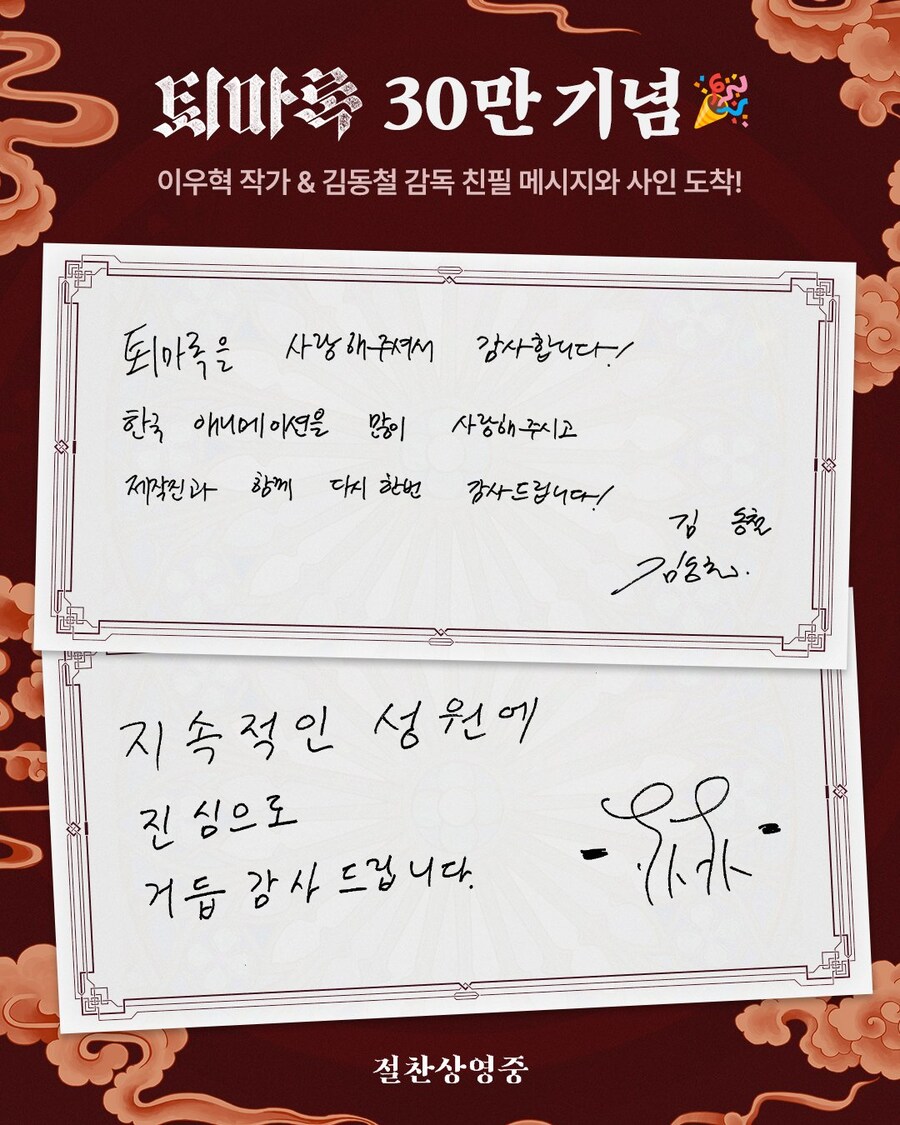 퇴마록 30만 기념
이우혁 작가 & 김동철 감독 친필 메시지와 사인 도착!
퇴마록을 사랑해주셔서 감사합니다!
한국 애니메이션을 많이 사랑해주시고
제작진과 함께 다시 한번 감사드립니다!
김 동철
김동철.
지속적인 성원에
진심으로
거듭 감사드립니다.
절찬상영중